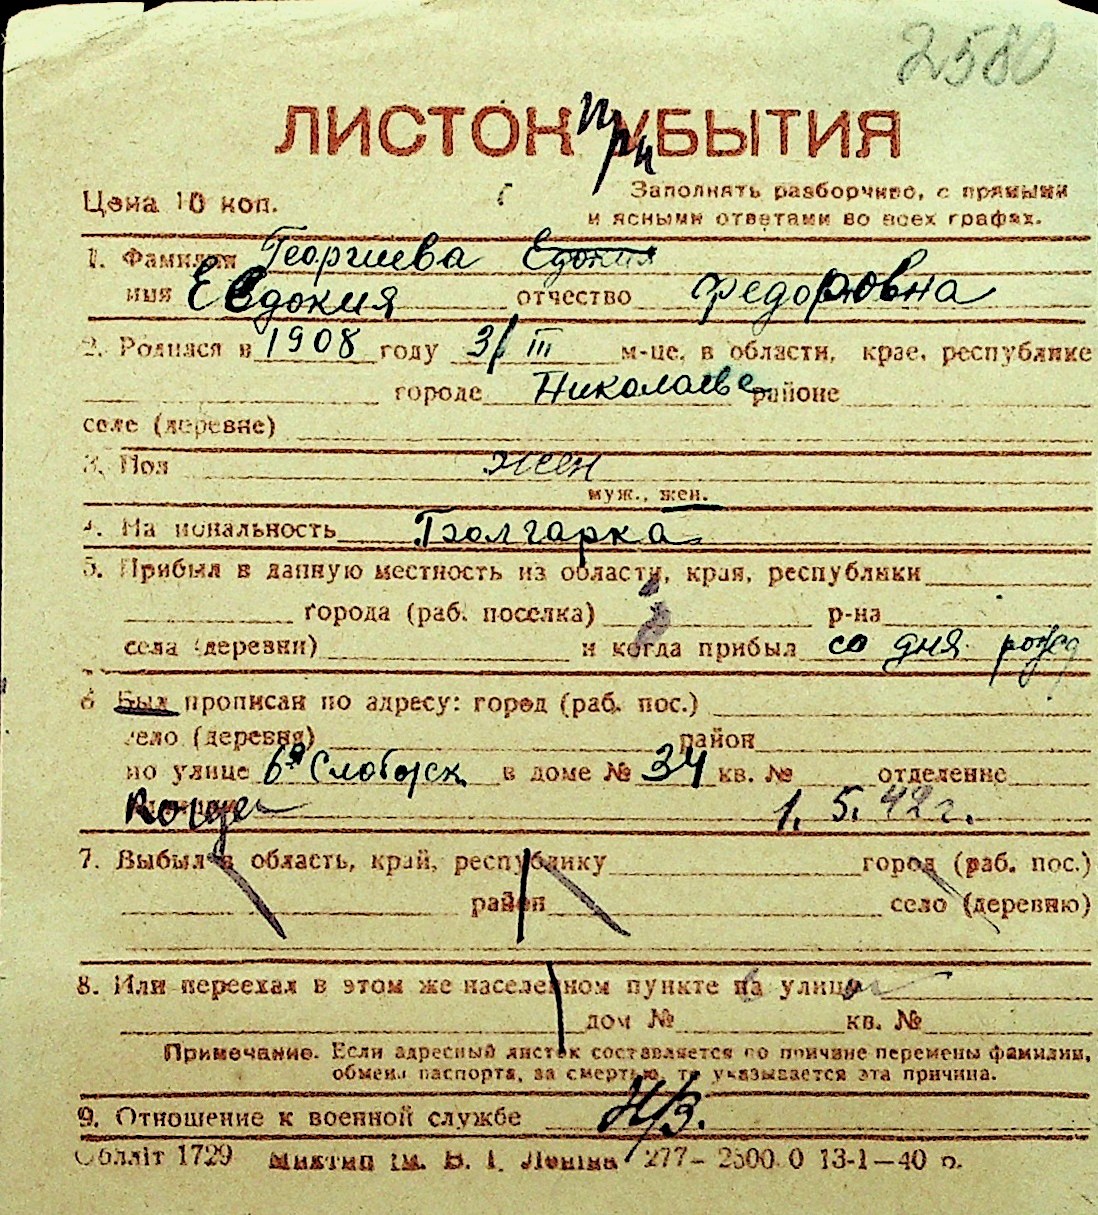 2580
ЛИСТОК при УБЫТИЯ
Цена 10 коп.
Заполнять разборчиво, с прямыми
и ясными ответами во всех графах.
1. Фамилия Георгиева Едокия
имя Евдокия отчество Федоровна
2. Родился в 1908 году 3/III м-це, в области, крае, республике
городе Николаеве районе
селе (деревне)
3. Пол жен
муж., жен.
4. Национальность Болгарка
5. Прибыл в данную местность из области, края, республики
города (раб. поселка) р-на
села (деревни) и когда прибыл со дня рожд
6 Был прописан по адресу: город (раб. пос.)
село (деревня) район
по улице 6я Слободск в доме № 34 кв. № отделение
1. 5. 42 г.
7. Выбыл в область, край, республику город (раб. пос.)
район село (деревню)
8. Или переехал в этом же населенном пункте на улицу
дом № кв. №
Примечание. Если адресный листок составляется по причине перемены фамилии,
обмена паспорта, за смертью, то указывается эта причина.
9. Отношение к военной службе Н/З.
Облліт 1729 Миктип ім. В. І. Леніна 277–2500.0 13-1–40 р.